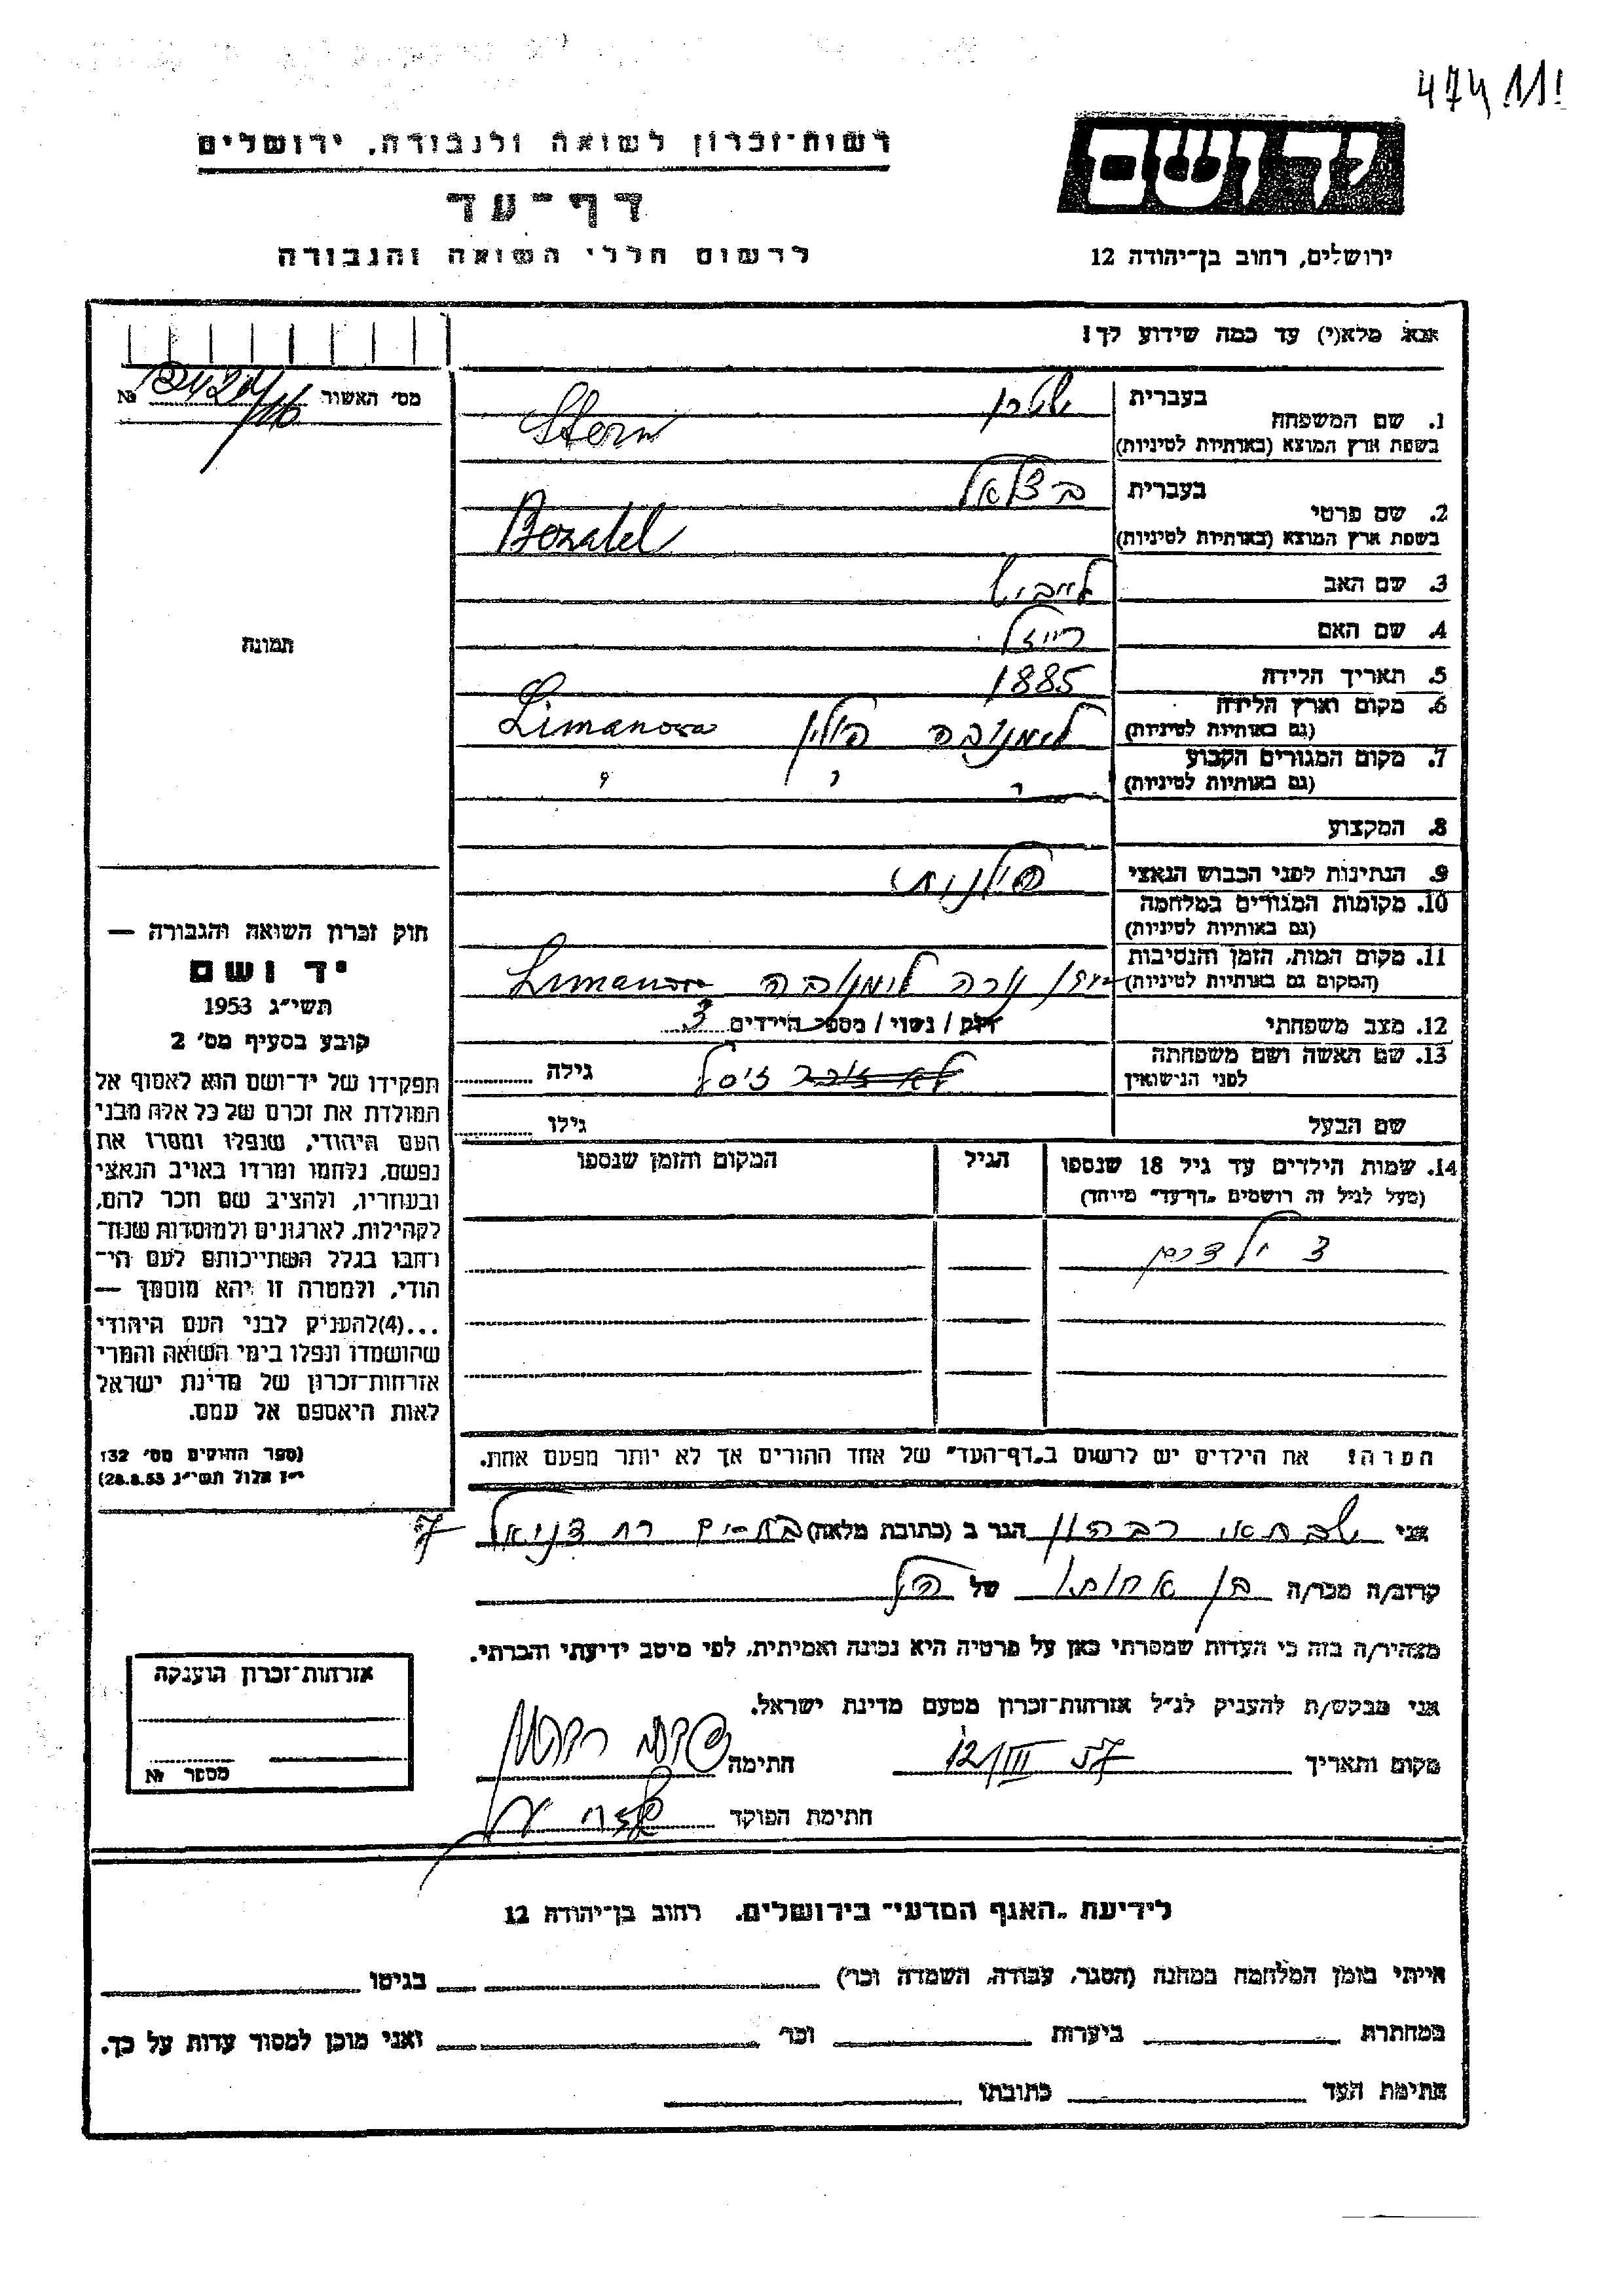 474 11!
רשות־זכרון לשואה ולגבורה, ירושלים
דף־עד
לרשום חללי השואה והגבורה
יד ושם
ירושלים, רחוב בן־יהודה 12
אנא מלא(י) עד כמה שידוע לך!
מס׳ האשור №
1. שם המשפחה בעברית שטרן
בשפת ארץ המוצא (באותיות לטיניות) Stern
2. שם פרטי בעברית בצלאל
בשפת ארץ המוצא (באותיות לטיניות) Bezalel
3. שם האב לייביש
4. שם האם רייזל
5. תאריך הלידה 1885
6. מקום וארץ הלידה (גם באותיות לטיניות) לימנובה פולין Limanowa
7. מקום המגורים הקבוע (גם באותיות לטיניות) " " "
8. המקצוע
9. הנתינות לפני הכבוש הנאצי פולנית
10. מקומות המגורים במלחמה (גם באותיות לטיניות)
11. מקום המות, הזמן והנסיבות (המקום גם באותיות לטיניות) לימנובה Limanowa
12. מצב משפחתי רווק / נשוי / מספר הילדים 3
13. שם האשה ושם משפחתה לפני הנישואין זיסל גילה
שם הבעל גילו
14. שמות הילדים עד גיל 18 שנספו הגיל המקום והזמן שנספו
(מעל לגיל זה רושמים "דף־עד" מיוחד)
3 ילדים
הערה: את הילדים יש לרשום ב"דף־העד" של אחד ההורים אך לא יותר מפעם אחת.
תמונה
חוק זכרון השואה והגבורה —
יד ושם
תשי"ג 1953
קובע בסעיף מס׳ 2
תפקידו של יד־ושם הוא לאסוף אל
המולדת את זכרם של כל אלה מבני
העם היהודי, שנפלו ומסרו את
נפשם, נלחמו ומרדו באויב הנאצי
ובעוזריו, ולהציב שם וזכר להם,
לקהילות, לארגונים ולמוסדות שנח־
רבו בגלל השתייכותם לעם הי־
הודי, ולמטרה זו יהא מוסמך —
...(4)להעניק לבני העם היהודי
שהושמדו ונפלו בימי השואה והמרי
אזרחות־זכרון של מדינת ישראל
לאות היאספם אל עמם.
(ספר החוקים מס׳ 132
י"ז אלול תשי"ג 28.8.53)
אני שבתאי הגר ב (כתובת מלאה) בת־ים רח דניאל 7
קרוב/ה מכר/ה בן אחותו של הנ"ל
מצהיר/ה בזה כי העדות שמסרתי כאן על פרטיה היא נכונה ואמיתית, לפי מיטב ידיעתי והכרתי.
אני מבקש/ת להעניק לנ"ל אזרחות־זכרון מטעם מדינת ישראל.
מקום ותאריך 12/III 57 חתימה
חתימת הפוקד
אזרחות־זכרון הוענקה
מספר №
לידיעת "האגף המדעי" בירושלים, רחוב בן־יהודה 12
הייתי בזמן המלחמה במחנה (הסגר, עבודה, השמדה וכו׳) בגיטו
במחתרת ביערות וכו׳ ואני מוכן למסור עדות על כך.
חתימת העד כתובתו